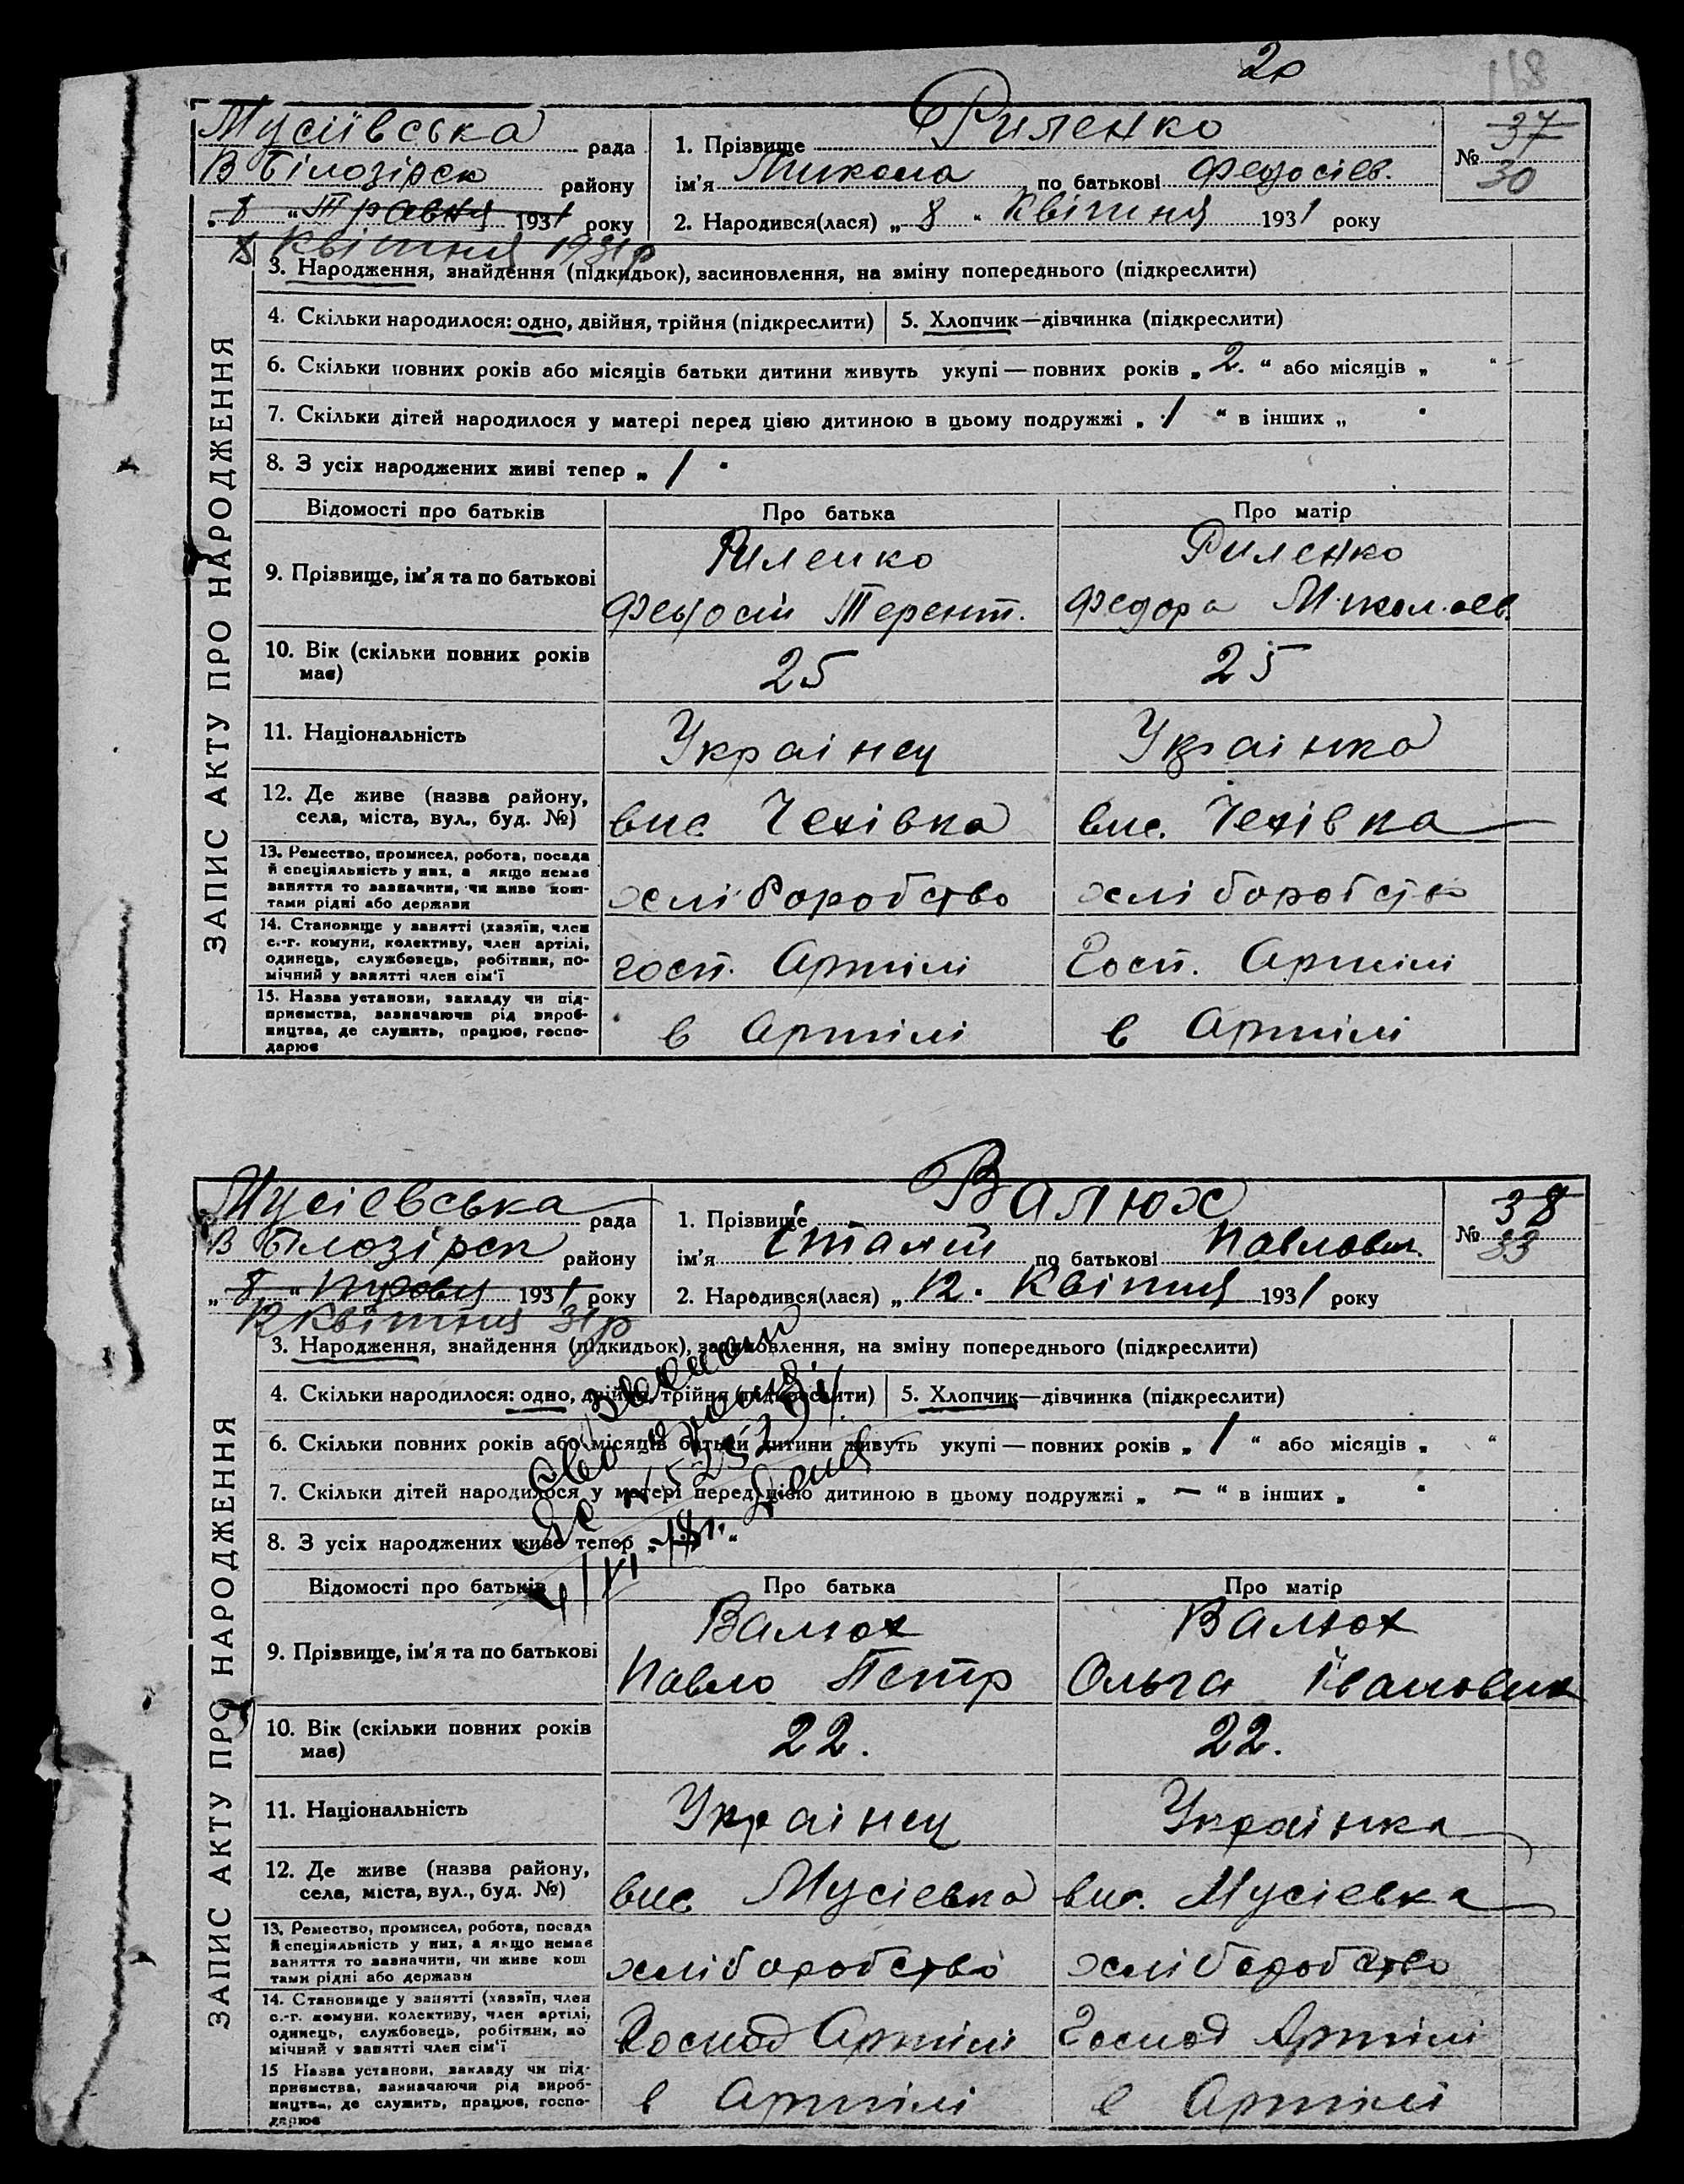 20
118
Мусіївська рада
В Білозірск району
„ 8 “ Травня 1931 року
8 Квітня 1931 р
1. Прізвище Риленко
ім’я Микола по батькові Федосієв.
2. Народився(лася) „ 8 “ Квітня 1931 року
№ 37
30
ЗАПИС АКТУ ПРО НАРОДЖЕННЯ
3. Народження, знайдення (підкидьок), засиновлення, на зміну попереднього (підкреслити)
4. Скільки народилося: одно, двійня, трійня (підкреслити)
5. Хлопчик—дівчинка (підкреслити)
6. Скільки повних років або місяців батьки дитини живуть укупі — повних років „ 2. “ або місяців „ “
7. Скільки дітей народилося у матері перед цією дитиною в цьому подружжі „ 1 “ в інших „ “
8. З усіх народжених живі тепер „ 1 “
Відомості про батьків Про батька Про матір
9. Прізвище, ім’я та по батькові
Риленко
Федосій Терент.
Риленко
Федора Миколаєв.
10. Вік (скільки повних років
має)
25
25
11. Національність
Украінец
Украінка
12. Де живе (назва району,
села, міста, вул., буд. №)
вис. Чехівка
вис. Чехівка
13. Ремество, промисел, робота, посада
й спеціяльність у них, а якщо немає
заняття то зазначити, чи живе кош-
тами рідні або держави
хліборобство
хліборобство
14. Становище у занятті (хазяїн, член
с.-г. комуни, колективу, член артілі,
одинець, службовець, робітник, по-
мічний у занятті член сім’ї
госп. Артілі
Госп. Артілі
15. Назва установи, закладу чи під-
приємства, зазначаючи рід вироб-
ництва, де служить, працює, госпо-
дарює
в Артілі
в Артілі
Мусієвська рада
В Білозірск району
„ 8 “ травня 1931 року
12 Квітня 31 р
1. Прізвище Валюх
ім’я по батькові Павлович.
2. Народився(лася) „ 12. Квітня 1931 року
№ 38
33
ЗАПИС АКТУ ПРО НАРОДЖЕННЯ
3. Народження, знайдення (підкидьок), засиновлення, на зміну попереднього (підкреслити)
4. Скільки народилося: одно, двійня, трійня (підкреслити)
5. Хлопчик—дівчинка (підкреслити)
6. Скільки повних років або місяців батьки дитини живуть укупі — повних років „ 1 “ або місяців „ “
7. Скільки дітей народилося у матері перед цією дитиною в цьому подружжі „ — “ в інших „ “
8. З усіх народжених живі тепер
Відомості про батьків Про батька Про матір
9. Прізвище, ім’я та по батькові
Валюх
Павло Петр
Валюх
Ольга Івановна
10. Вік (скільки повних років
має)
22.
22.
11. Національність
Украінец
Украінка
12. Де живе (назва району,
села, міста, вул., буд. №)
вис. Мусієвка
вис. Мусієвка
13. Ремество, промисел, робота, посада
й спеціяльність у них, а якщо немає
заняття то зазначити, чи живе кош
тами рідні або держави
хліборобство
хліборобство
14. Становище у занятті (хазяїн, член
с.-г. комуни, колективу, член артілі,
одинець, службовець, робітник, по
мічний у занятті член сім’ї
Господ Артілі
Господ Артілі
15 Назва установи, закладу чи під-
приємства, зазначаючи рід вироб-
ництва, де служить, працює, госпо-
дарює
в Артілі
в Артілі